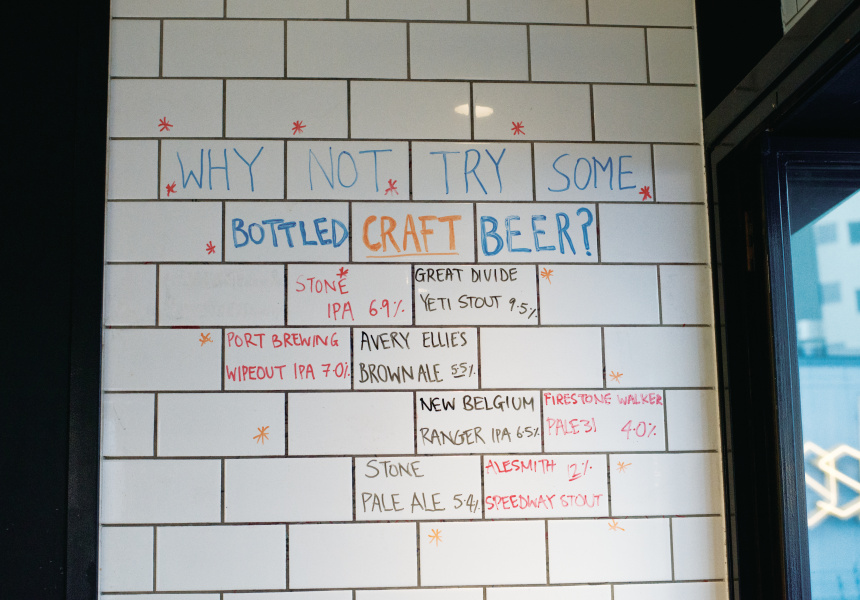 WHY NOT TRY SOME
BOTTLED CRAFT BEER?
STONE
IPA 6.9%
GREAT DIVIDE
YETI STOUT 9.5%
PORT BREWING
WIPEOUT IPA 7.0%
AVERY ELLIES
BROWN ALE 5.5%
NEW BELGIUM
RANGER IPA 6.5%
FIRESTONE WALKER
PALE 31 4.0%
STONE
PALE ALE 5.4%
ALESMITH 12%
SPEEDWAY STOUT